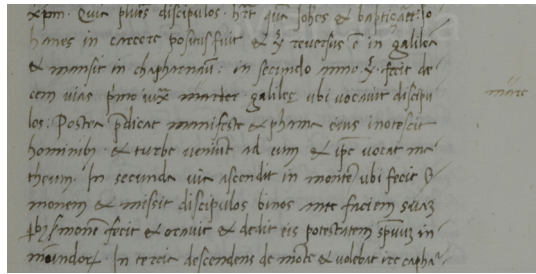 xpm. Quia plures discipulos. hret qm Johes & baptizaret. io
hanes in carcere positus fuit & xp reversus e in galilea
& mansit in chapharnau: in secundo anno xp fecit de
cem vias primo iux galilee ubi vocavit discipu
los. Postea predicat manifeste & phama eius inotescit
hominib & turbe veniut ad eum & ipe vocat ma
theum. In secunda via ascendit in monte ubi fecit
monem & missit discipulos binos ante faciem suaz
simone fecit & oravit & dedit eis potestatem spuuz in
mundor. In tercia descendens de mote & volebat ire capha
mare